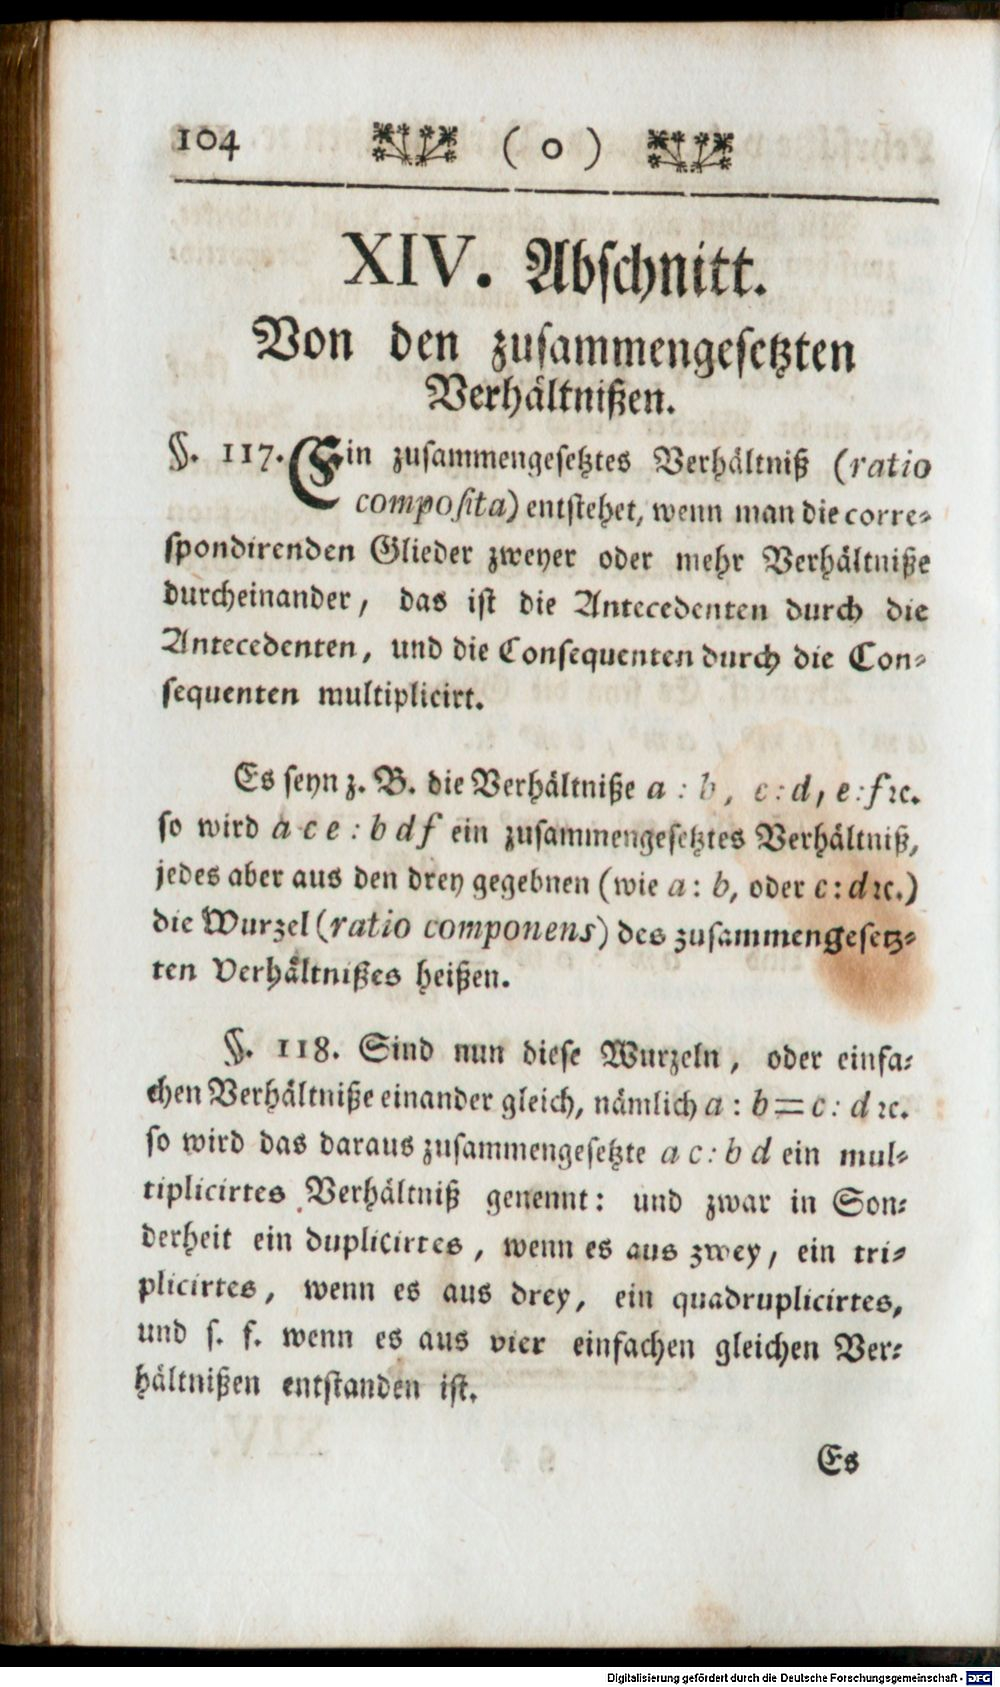 104 ( o )
XIV. Abschnitt.
Von den zusammengesetzten
Verhältnißen.
§. 117. Ein zusammengesetztes Verhältniß (ratio
composita) entstehet, wenn man die corre-
spondirenden Glieder zweyer oder mehr Verhältniße
durcheinander, das ist die Antecedenten durch die
Antecedenten, und die Consequenten durch die Con-
sequenten multiplicirt.
Es seyn z. B. die Verhältniße a : b, c : d, e : f ꝛc.
so wird a c e : b d f ein zusammengesetztes Verhältniß,
jedes aber aus den drey gegebnen (wie a : b, oder c : d ꝛc.)
die Wurzel (ratio componens) des zusammengesetz-
ten Verhältnißes heißen.
§. 118. Sind nun diese Wurzeln, oder einfa-
chen Verhältniße einander gleich, nämlich a : b = c : d ꝛc.
so wird das daraus zusammengesetzte a c : b d ein mul-
tiplicirtes Verhältniß genennt: und zwar in Son-
derheit ein duplicirtes, wenn es aus zwey, ein tri-
plicirtes, wenn es aus drey, ein quadruplicirtes,
und s. f. wenn es aus vier einfachen gleichen Ver-
hältnißen entstanden ist.
Es
Digitalisierung gefördert durch die Deutsche Forschungsgemeinschaft - DFG